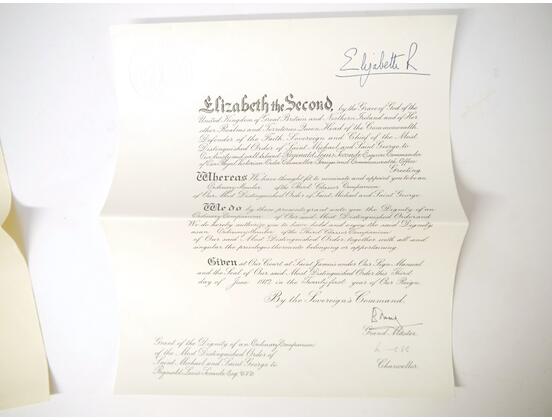 Elizabeth R
Elizabeth the Second, by the Grace of God of the
United Kingdom of Great Britain and Northern Ireland and of Her
other Realms and Territories Queen, Head of the Commonwealth,
Defender of the Faith, Sovereign and Chief of the Most
Distinguished Order of Saint Michael and Saint George, to
Our trusty and well beloved Reginald Louis Esquire Commander
of Our Royal Victorian Order Chancellor Foreign and Commonwealth Office
Greeting
Whereas We have thought fit to nominate and appoint you to be an
Ordinary Member of the Third Class or Companion
of Our Most Distinguished Order of Saint Michael and Saint George
We do by these presents grant unto you the Dignity of an
Ordinary Companion of Our said Most Distinguished Order and
We do hereby authorize you to have hold and enjoy the said Dignity
as an Ordinary Member of the Third Class or Companion
of Our said Most Distinguished Order, together with all and
singular the privileges thereunto belonging or appertaining.
Given at Our Court at Saint James's under Our Sign Manual
and the Seal of Our said Most Distinguished Order this Third
day of June 1972 in the Twenty-first year of Our Reign.
By the Sovereign's Command,
Grand Master
Chancellor
Grant of the Dignity of an Ordinary Companion
of the Most Distinguished Order of
Saint Michael and Saint George to
Reginald Louis Esq.